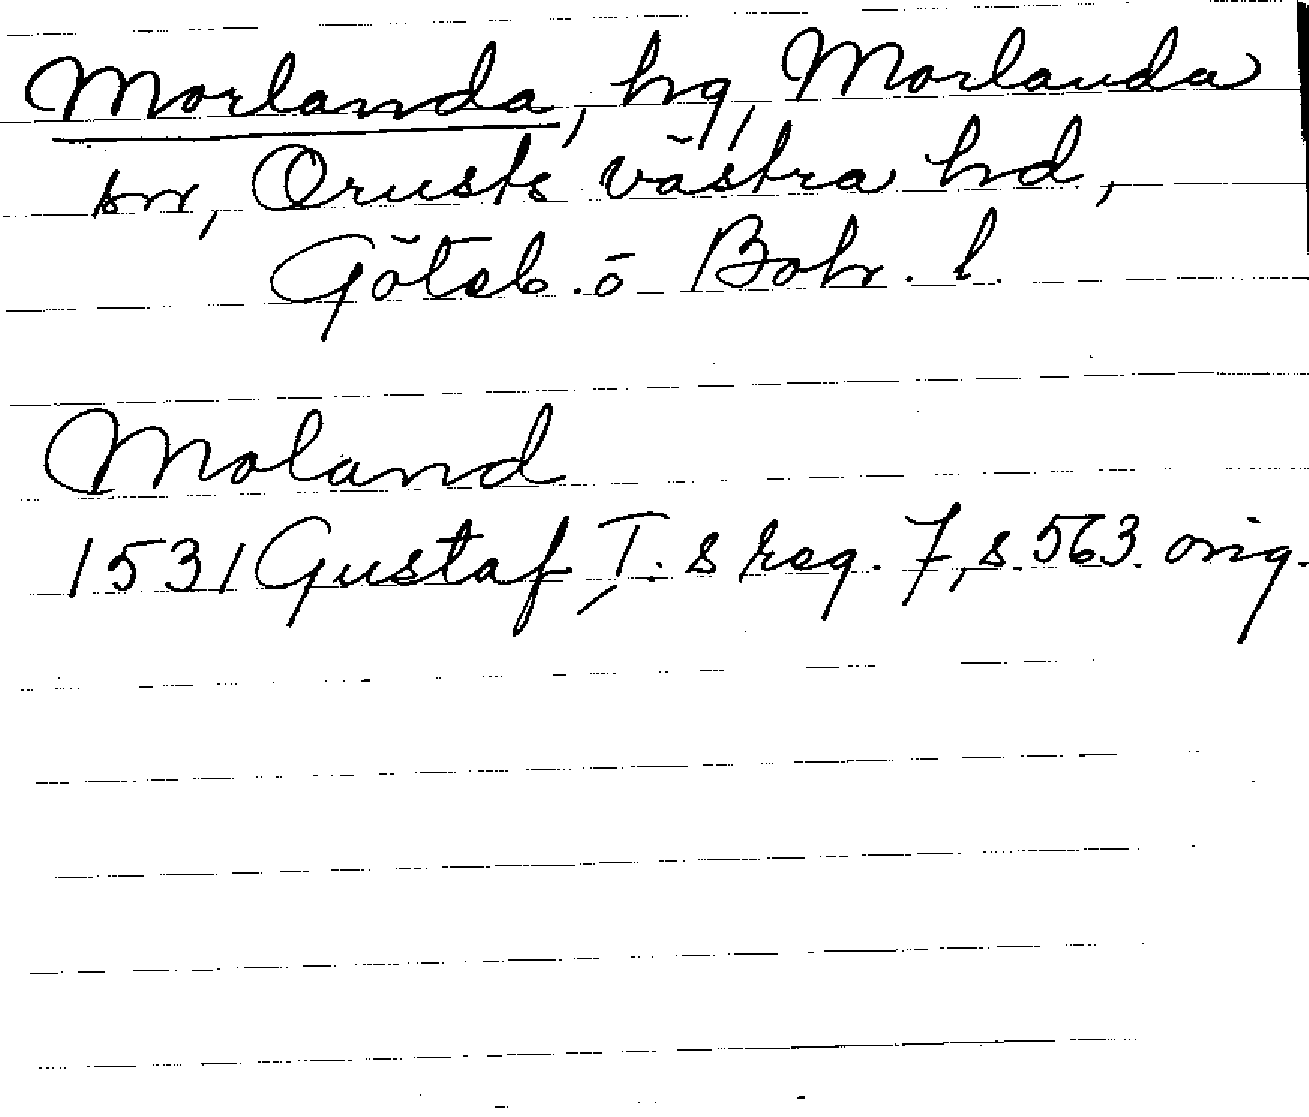 Morlanda, hg, Morlanda
sn, Orusts västra hd,
Göteb. o Boh. l.
Moland
1531 Gustaf I.s reg. 7, s. 563. orig.